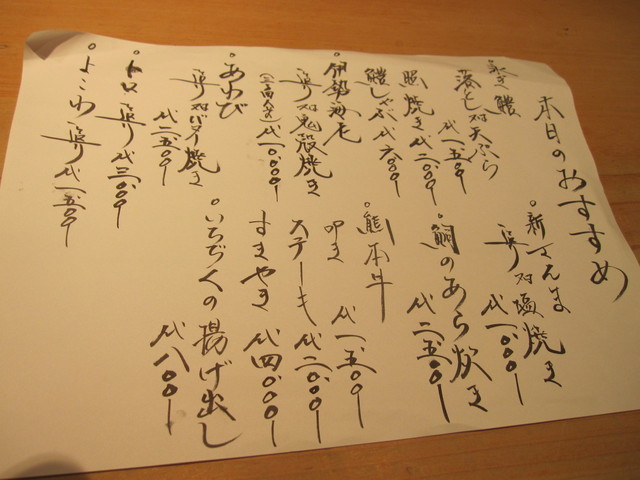 本日のおすすめ
。新さんま
造り 又ハ 塩焼き
代一、〇〇〇ー
鯛のあら炊き
代二、五〇〇ー
。熊本牛
叩き 代一、五〇〇ー
ステーキ 代二、〇〇〇ー
すきやき 代四、〇〇〇ー
。いちぢくの揚げ出し
代八〇〇ー
鱧
落とし 又ハ 天ぷら
代一、五〇〇ー
照焼き 代二、〇〇〇ー
鱧しゃぶ 代六、〇〇〇ー
。伊勢海老
造り 又ハ 鬼殻焼き
代一〇、〇〇〇ー
。あわび
造り 又ハ バター焼き
代二、五〇〇ー
。トロ 造り 代三、〇〇〇ー
。よこわ 造り 代一、五〇〇ー